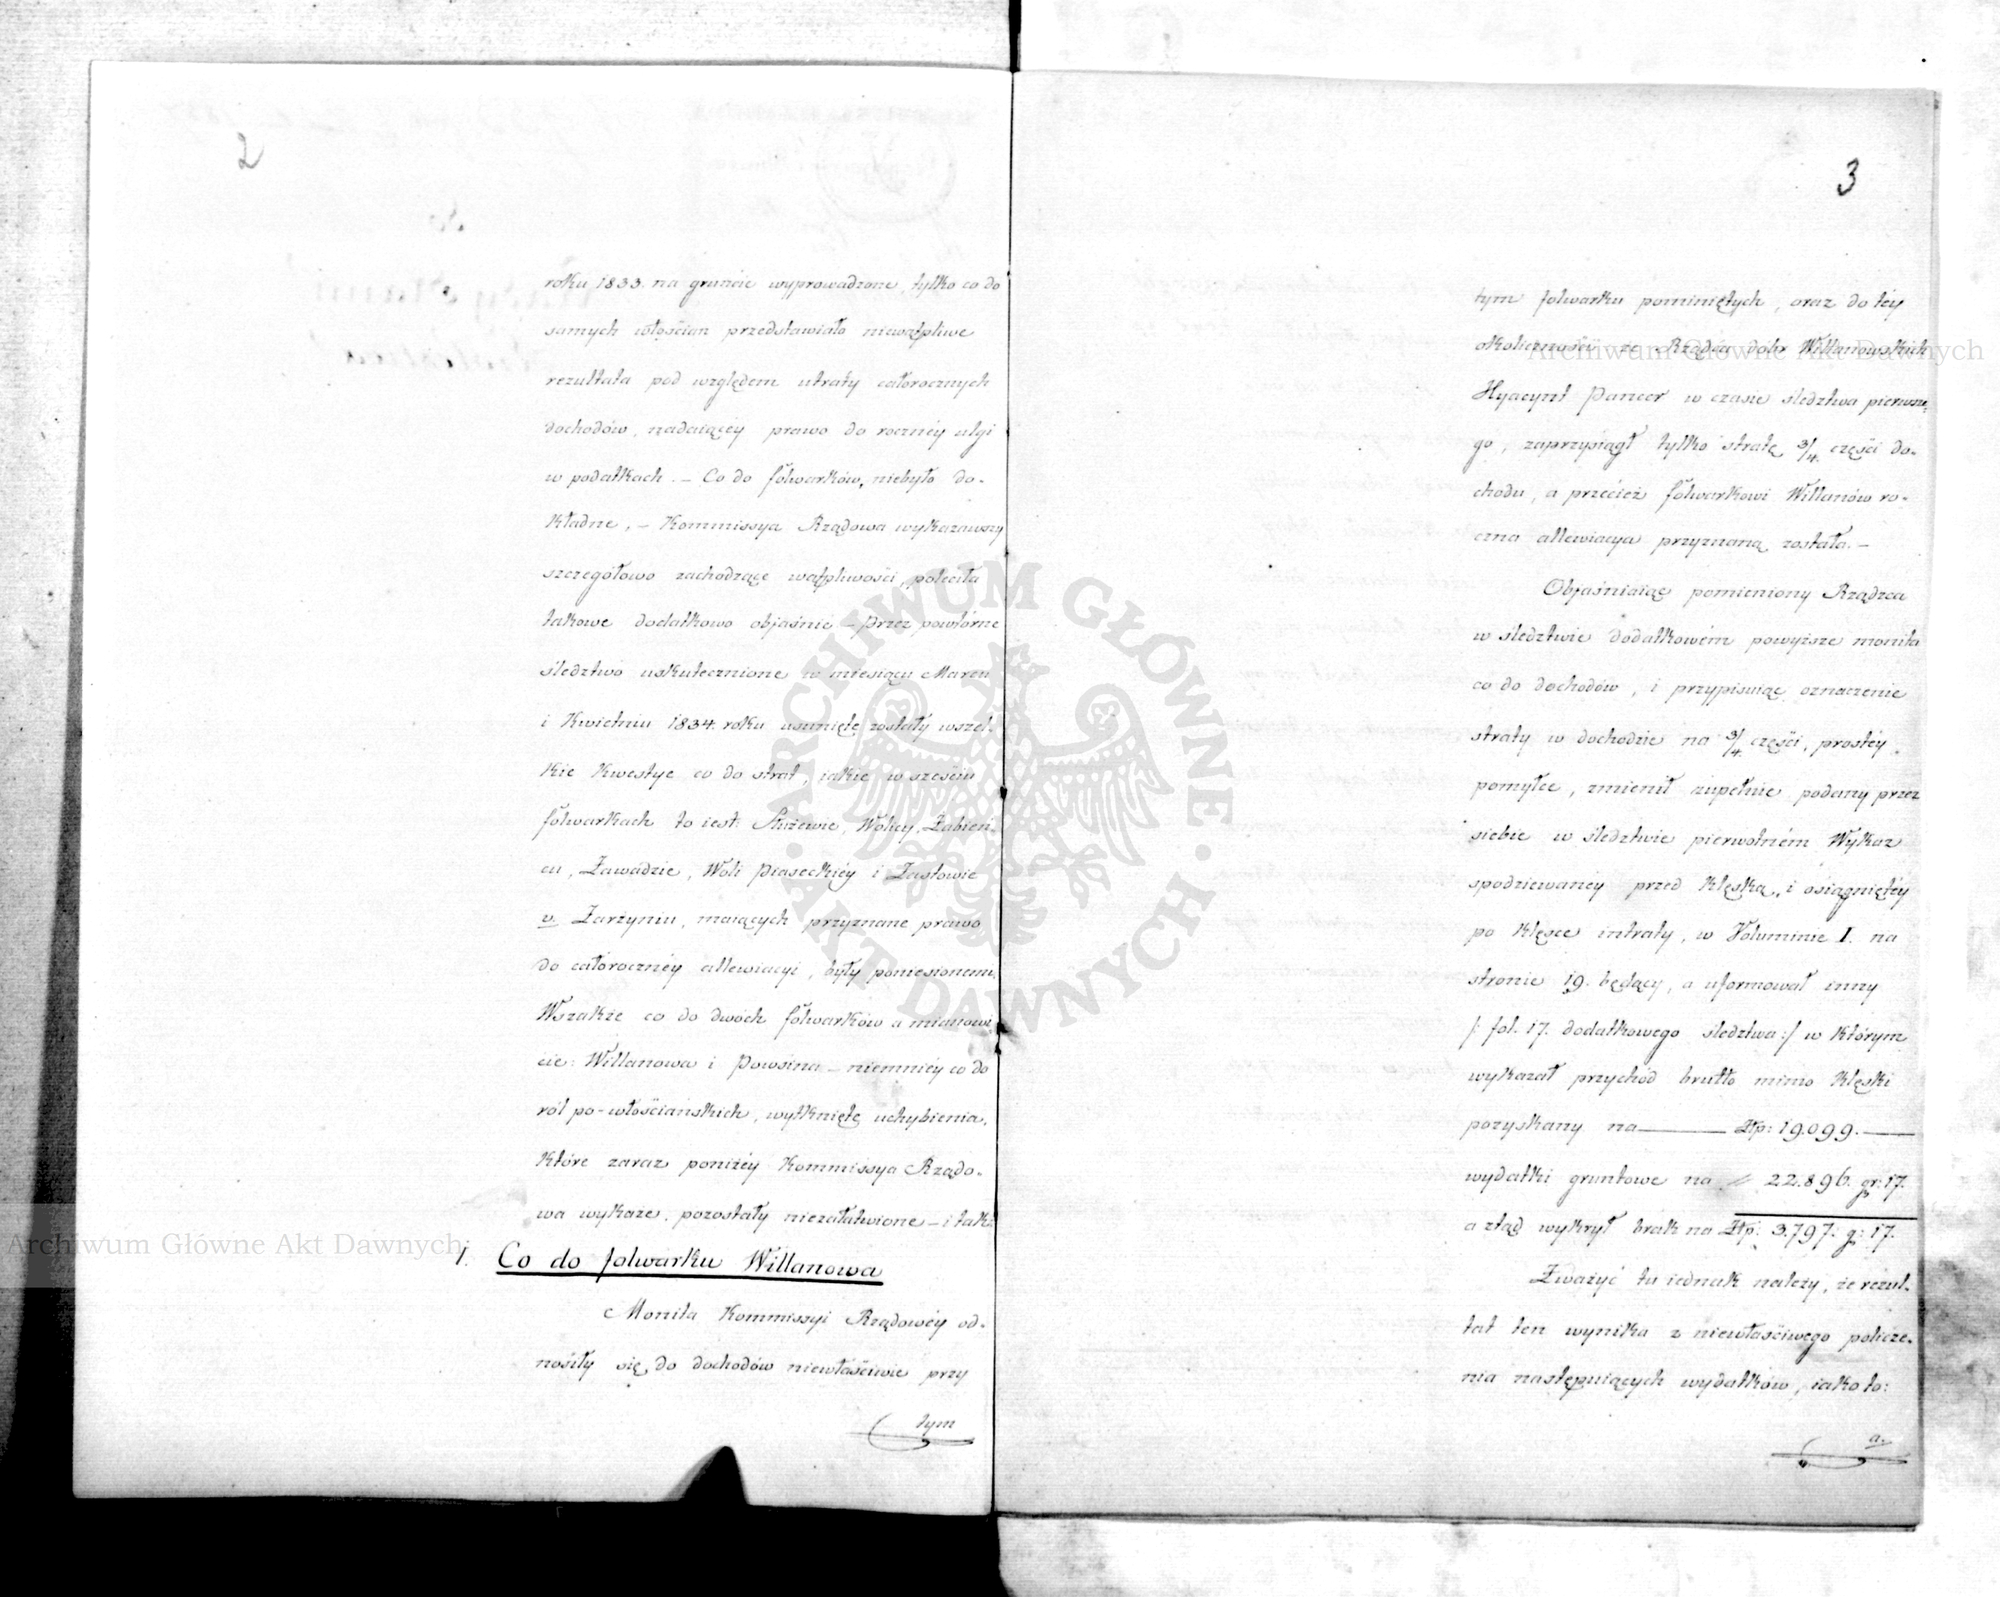 2
roku 1833. na gruncie wyprowadzone, tylko co do
samych włościan przedstawiało niewątpliwe
rezultata pod względem utraty całorocznych
dochodów, nadaiącéy prawo do rocznéy ulgi
w podatkach. – Co do folwarków, niebyło do-
kładne, – Kommissya Rządowa wykazawszy
szczegółowo zachodzące wątpliwości, poleciła
takowe dodatkowo objaśnić – Przez powtórne
śledztwo uskutecznione w miesiącu Marcu
i Kwietniu 1834. roku usunięte zostały wszel-
kie kwestye co do strat, iakie w sześciu
folwarkach to iest: Służewie, Wolicy, Żabień-
cu, Zawadzie, Woli Piaseckiéy i Zastowie
v. Zarzyniu, maiących przyznane prawo
do całorocznéy allewiacyi, były poniesionemi
Wszakże co do dwóch folwarków a mianowi
cie: Willanowa i Powsina – niemniéy co do
ról po-włościańskich, wytknięte uchybienia,
które zaraz poniżéy Kommissya Rządo-
wa wykaże, pozostały niezałatwione – i tak:
1. Co do folwarku Willanowa
Monita Kommissyi Rządowéy od-
nosiły się do dochodów niewłaściwie przy
tym
3
tym folwarku pominiętych, oraz do téy
okoliczności, że Rządca dóbr Willanowskich
Hyacynt Pancer w czasie śledztwa pierwsze-
go, zaprzysiągł tylko stratę 3/4 części do-
chodu, a przecież folwarkowi Willanów ro-
czna allewiacya przyznaną została. –
Objaśniaiąc pomieniony Rządca
w śledztwie dodatkowém powyższe monita
co do dochodów, i przypisuiąc oznaczenie
straty w dochodzie na 3/4 części, prostéy
pomyłce, zmienił zupełnie podany przez
siebie w śledztwie pierwotném Wykaz
spodziewanéy przed klęską, i osiągniętéy
po klęsce intraty, w Voluminie I. na
stronie 19. będący, a uformował inny
/: fol. 17. dodatkowego śledztwa :/ w którym
wykazał przychód brutto mimo klęski
pozyskany na Złp: 19.099.
wydatki gruntowe na „ 22.896. gr: 17.
a ztąd wykrył brak na Złp: 3.797: g: 17.
Zważyć tu iednak należy, że rezul-
tat ten wynika z niewłaściwego policze-
nia następuiących wydatków, iako to:
a.
ARCHIWUM GŁÓWNE
AKT DAWNYCH
Archiwum Główne Akt Dawnych
Archiwum Główne Akt Dawnych